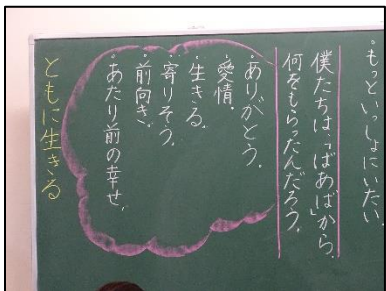 ・もっといっしょにいたい。
僕たちは、「ばあば」から、
何をもらったんだろう。
・ありがとう。
・愛情。
・生きる。
・寄りそう。
・前向き。
・あたり前の幸せ。
ともに生きる